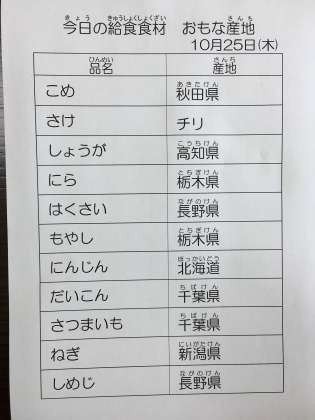 今日の給食食材　おもな産地
10月25日(木)
品名　産地
こめ　秋田県
さけ　チリ
しょうが　高知県
にら　栃木県
はくさい　長野県
もやし　栃木県
にんじん　北海道
だいこん　千葉県
さつまいも　千葉県
ねぎ　新潟県
しめじ　長野県